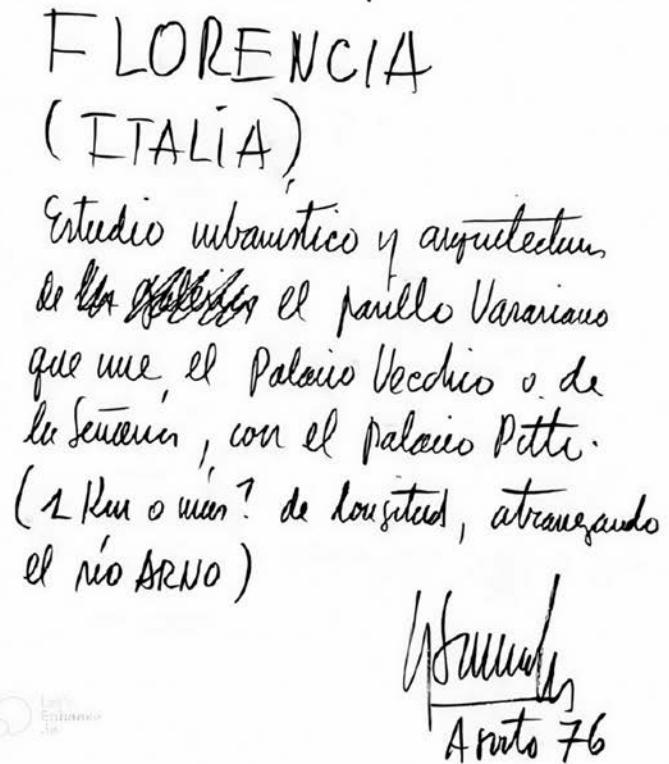 FLORENCIA
(ITALIA)
Estudio urbanístico y arquitectura
de el pasillo Vasariano
que une, el Palacio Vecchio o de
la Señoria, con el palacio Pitti.
(1 Km o más? de longitud, atravesando
el río ARNO)
Agosto 76